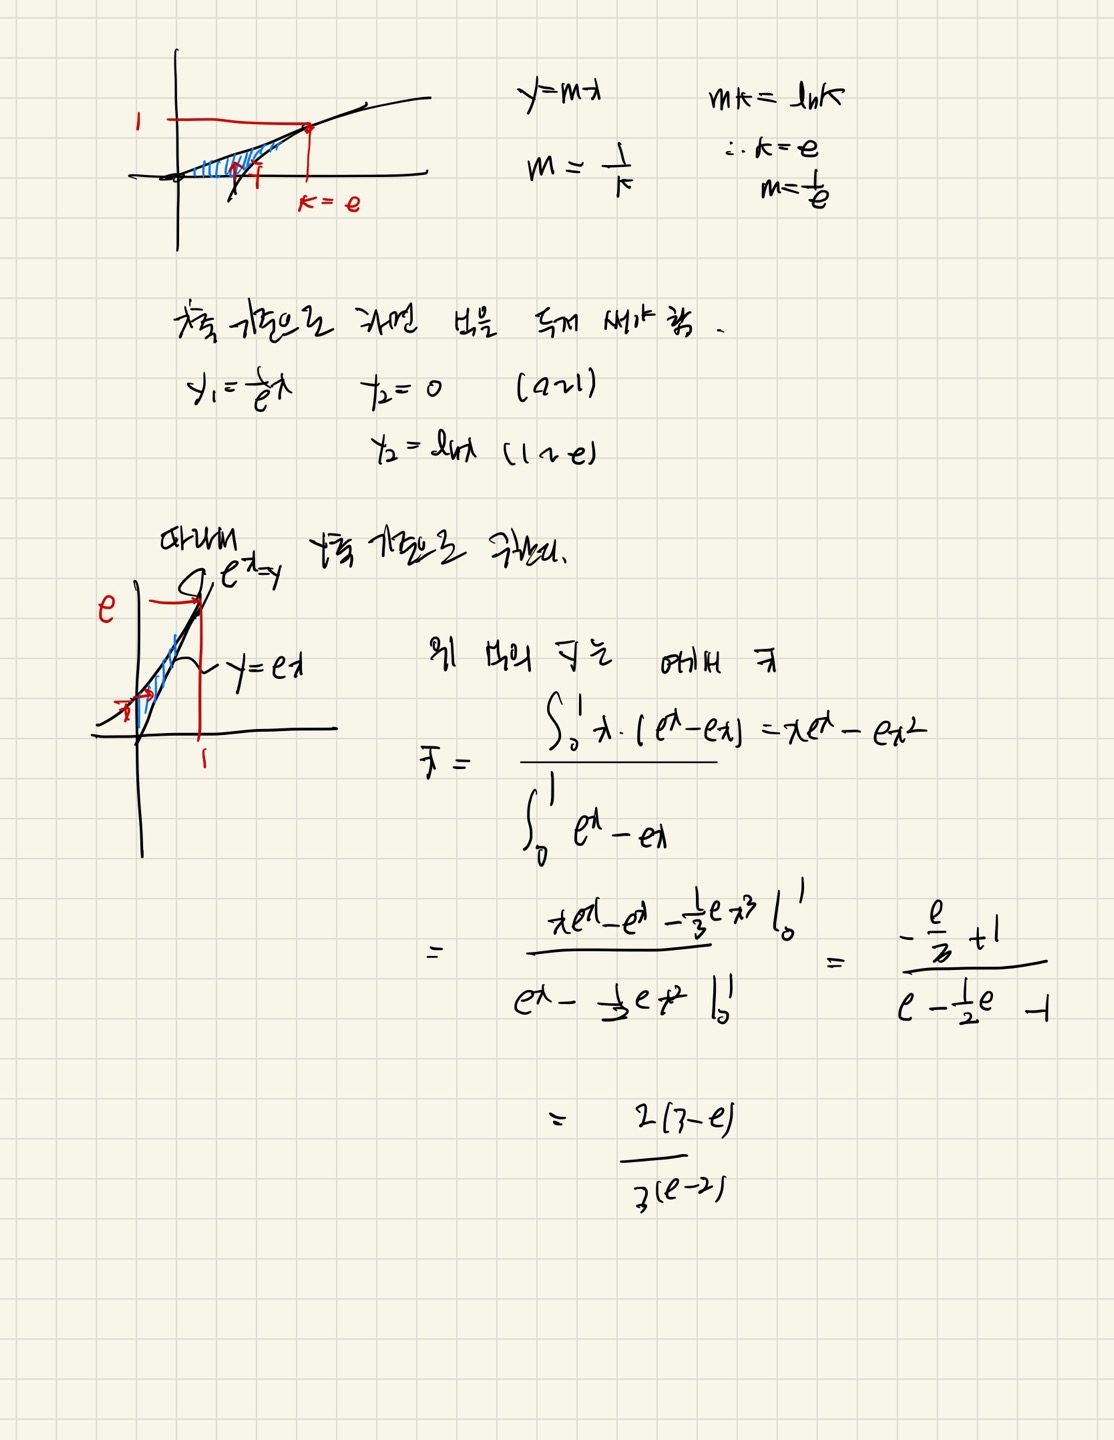 1
k = e
y=mx
m = 1/k
mk = lnk
∴ k = e
m = 1/e
x축 기준으로 하면 식을 두개 써야 함.
y₁ = 1/e x y₂ = 0 (0~1)
y₂ = lnx (1~e)
따라서 y축 기준으로 구한다.
e eˣ=y
y = ex
x̄
1
위 식의 ȳ는 에서 x̄
x̄ = ∫₀¹ x·(eˣ-ex) = xeˣ - ex²
∫₀¹ eˣ - ex
= xeˣ - eˣ - 1/3 e x³ |₀¹ = -e/3 + 1
eˣ - 1/2 e x² |₀¹ e - 1/2 e -1
= 2(3-e)
3(e-2)